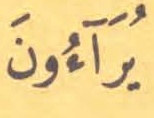 يُرَآءُونَ